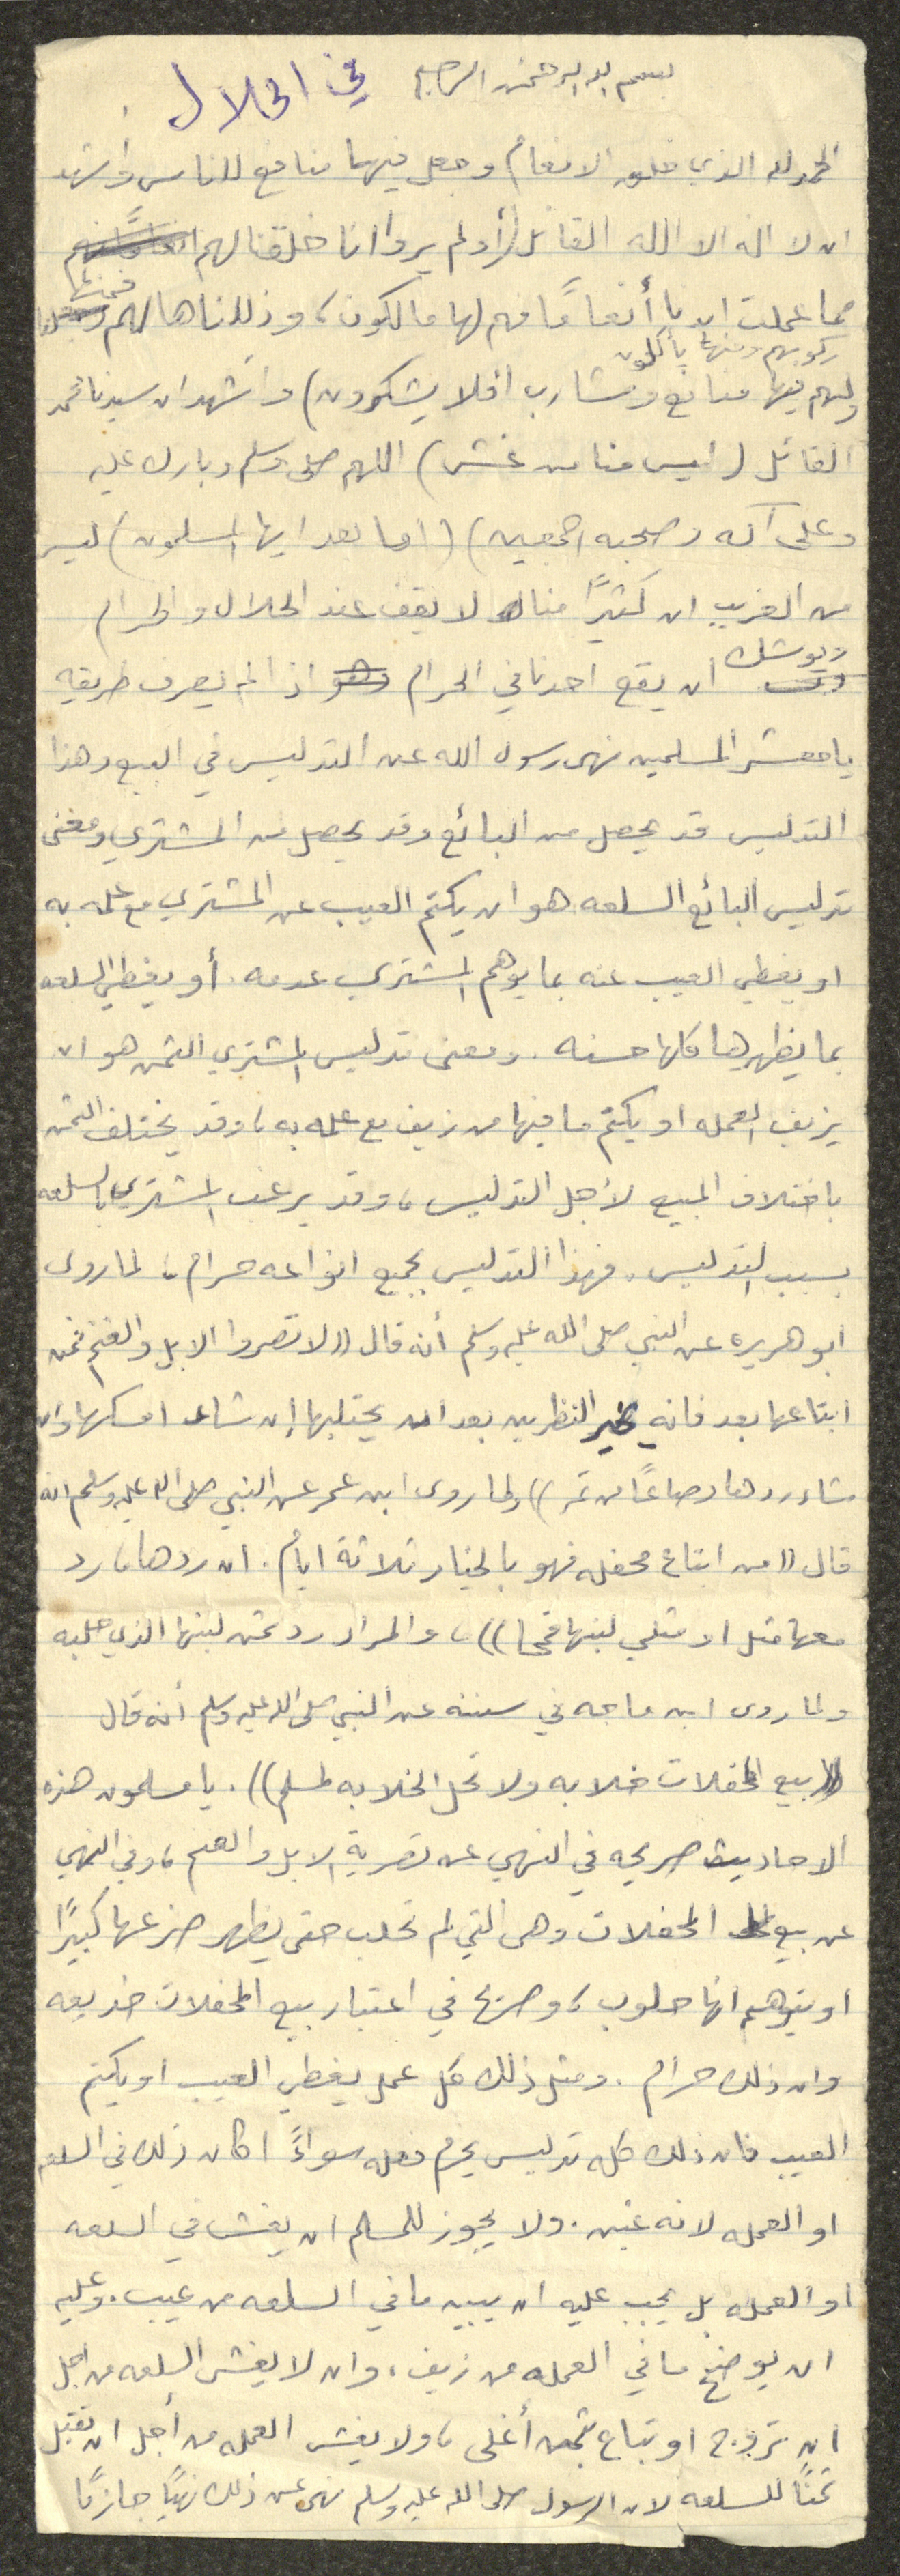 بسم الله الرحمن الرحيم في الحلال
الحمد لله الذي خلق الانعام وجعل فيها منافع للناس وأشهد
ان لا اله الا الله القائل (أولم يروا انا خلقنا لهم
مما عملت ايدينا أنعامًا فهم لها مالكون، وذللناها لهم فمنها
ركوبهم ومنها يأكلون
ولهم فيها منافع ومشارب أفلا يشكرون) وأشهد ان سيدنا محمد
القائل (ليس منا من غش) اللهم صلى وسلم وبارك عليه
وعلى آله وصحبه اجمعين) (اما بعد ايها المسلمون) ليس
من الغريب ان كثيرًا منا لا يقف عند الحلال والحرام
ويوشك أن يقع احدنا في الحرام اذا لم يعرف طريقه
يا معشر المسلمين نهى رسول الله عن التدليس في البيع وهذا
التدليس قد يحصل من البائع وقد يحصل من المشتري ومعنى
تدليس البائع السلعه هو ان يكتم العيب عن المشتري مع علمه به
او يغطي العيب عنه بما يوهم المشتري عدمه. أو يغطي السلعه
بما يظهرها كلها حسنه. ومعنى تدليس المشتري الثمن هو ان
يزيف العمله او يكتم ما فيها من زيف مع علمه به، وقد يختلف الثمن
باختلاف المبيع لأجل التدليس، وقد يرغب المشتري بالسلعه
بسبب التدليس. فهذا التدليس بجميع انواعه حرام، لما روى
ابو هريره عن النبي صلى الله عليه وسلم أنه قال ((لا تصروا الابل والغنم فمن
ابتاعها بعد فانه بخير النظرين بعد ان يحتلبها إن شاء امسكها وان
شاء ردها وصاعًا من تمر)) ولما روى ابن عمر عن النبي صلى الله عليه وسلم انه
قال ((من ابتاع محفله فهو بالخيار ثلاثة ايام. ان ردها، رد
معها مثل او مثلي لبنها قمحا))، والمراد رد ثمن لبنها الذي حلبه
ولما روى ابن ماجه في سننه عن النبي صلى الله عليه وسلم أنه قال
((بيع المحفلات خلابه ولا تحل الخلابه لمسلم)). يا مسلمون هذه
الاحاديث صريحه في النهي عن تصرية الابل والغنم، وفي النهي
عن بيع المحفلات وهى التي لم تحلب حتى يظهر ضرعها كبيرًا
او يتوهم انها حلوب، وصريح في اعتبار بيع المحفلات خديعه
وان ذلك حرام. ومثل ذلك كل عمل يغطي العيب او يكتم
العيب فان ذلك كله تدليس يحرم فعله سواءً اكان ذلك في السلعه
او العمله لانه غبن. ولا يجوز للمسلم ان يغش في السلعه
او العمله بل يجب عليه ان يبين ما في السلعه من عيب. وعليه
ان يوضح ما في العمله من زيف، وان لا يغش السلعه من اجل
ان تروج او تباع بثمن أغلى، ولا يغش العمله من أجل ان تقبل
ثمنًا للسلعه لان الرسول صلى الله عليه وسلم نهى عن ذلك نهيًا جازمًا